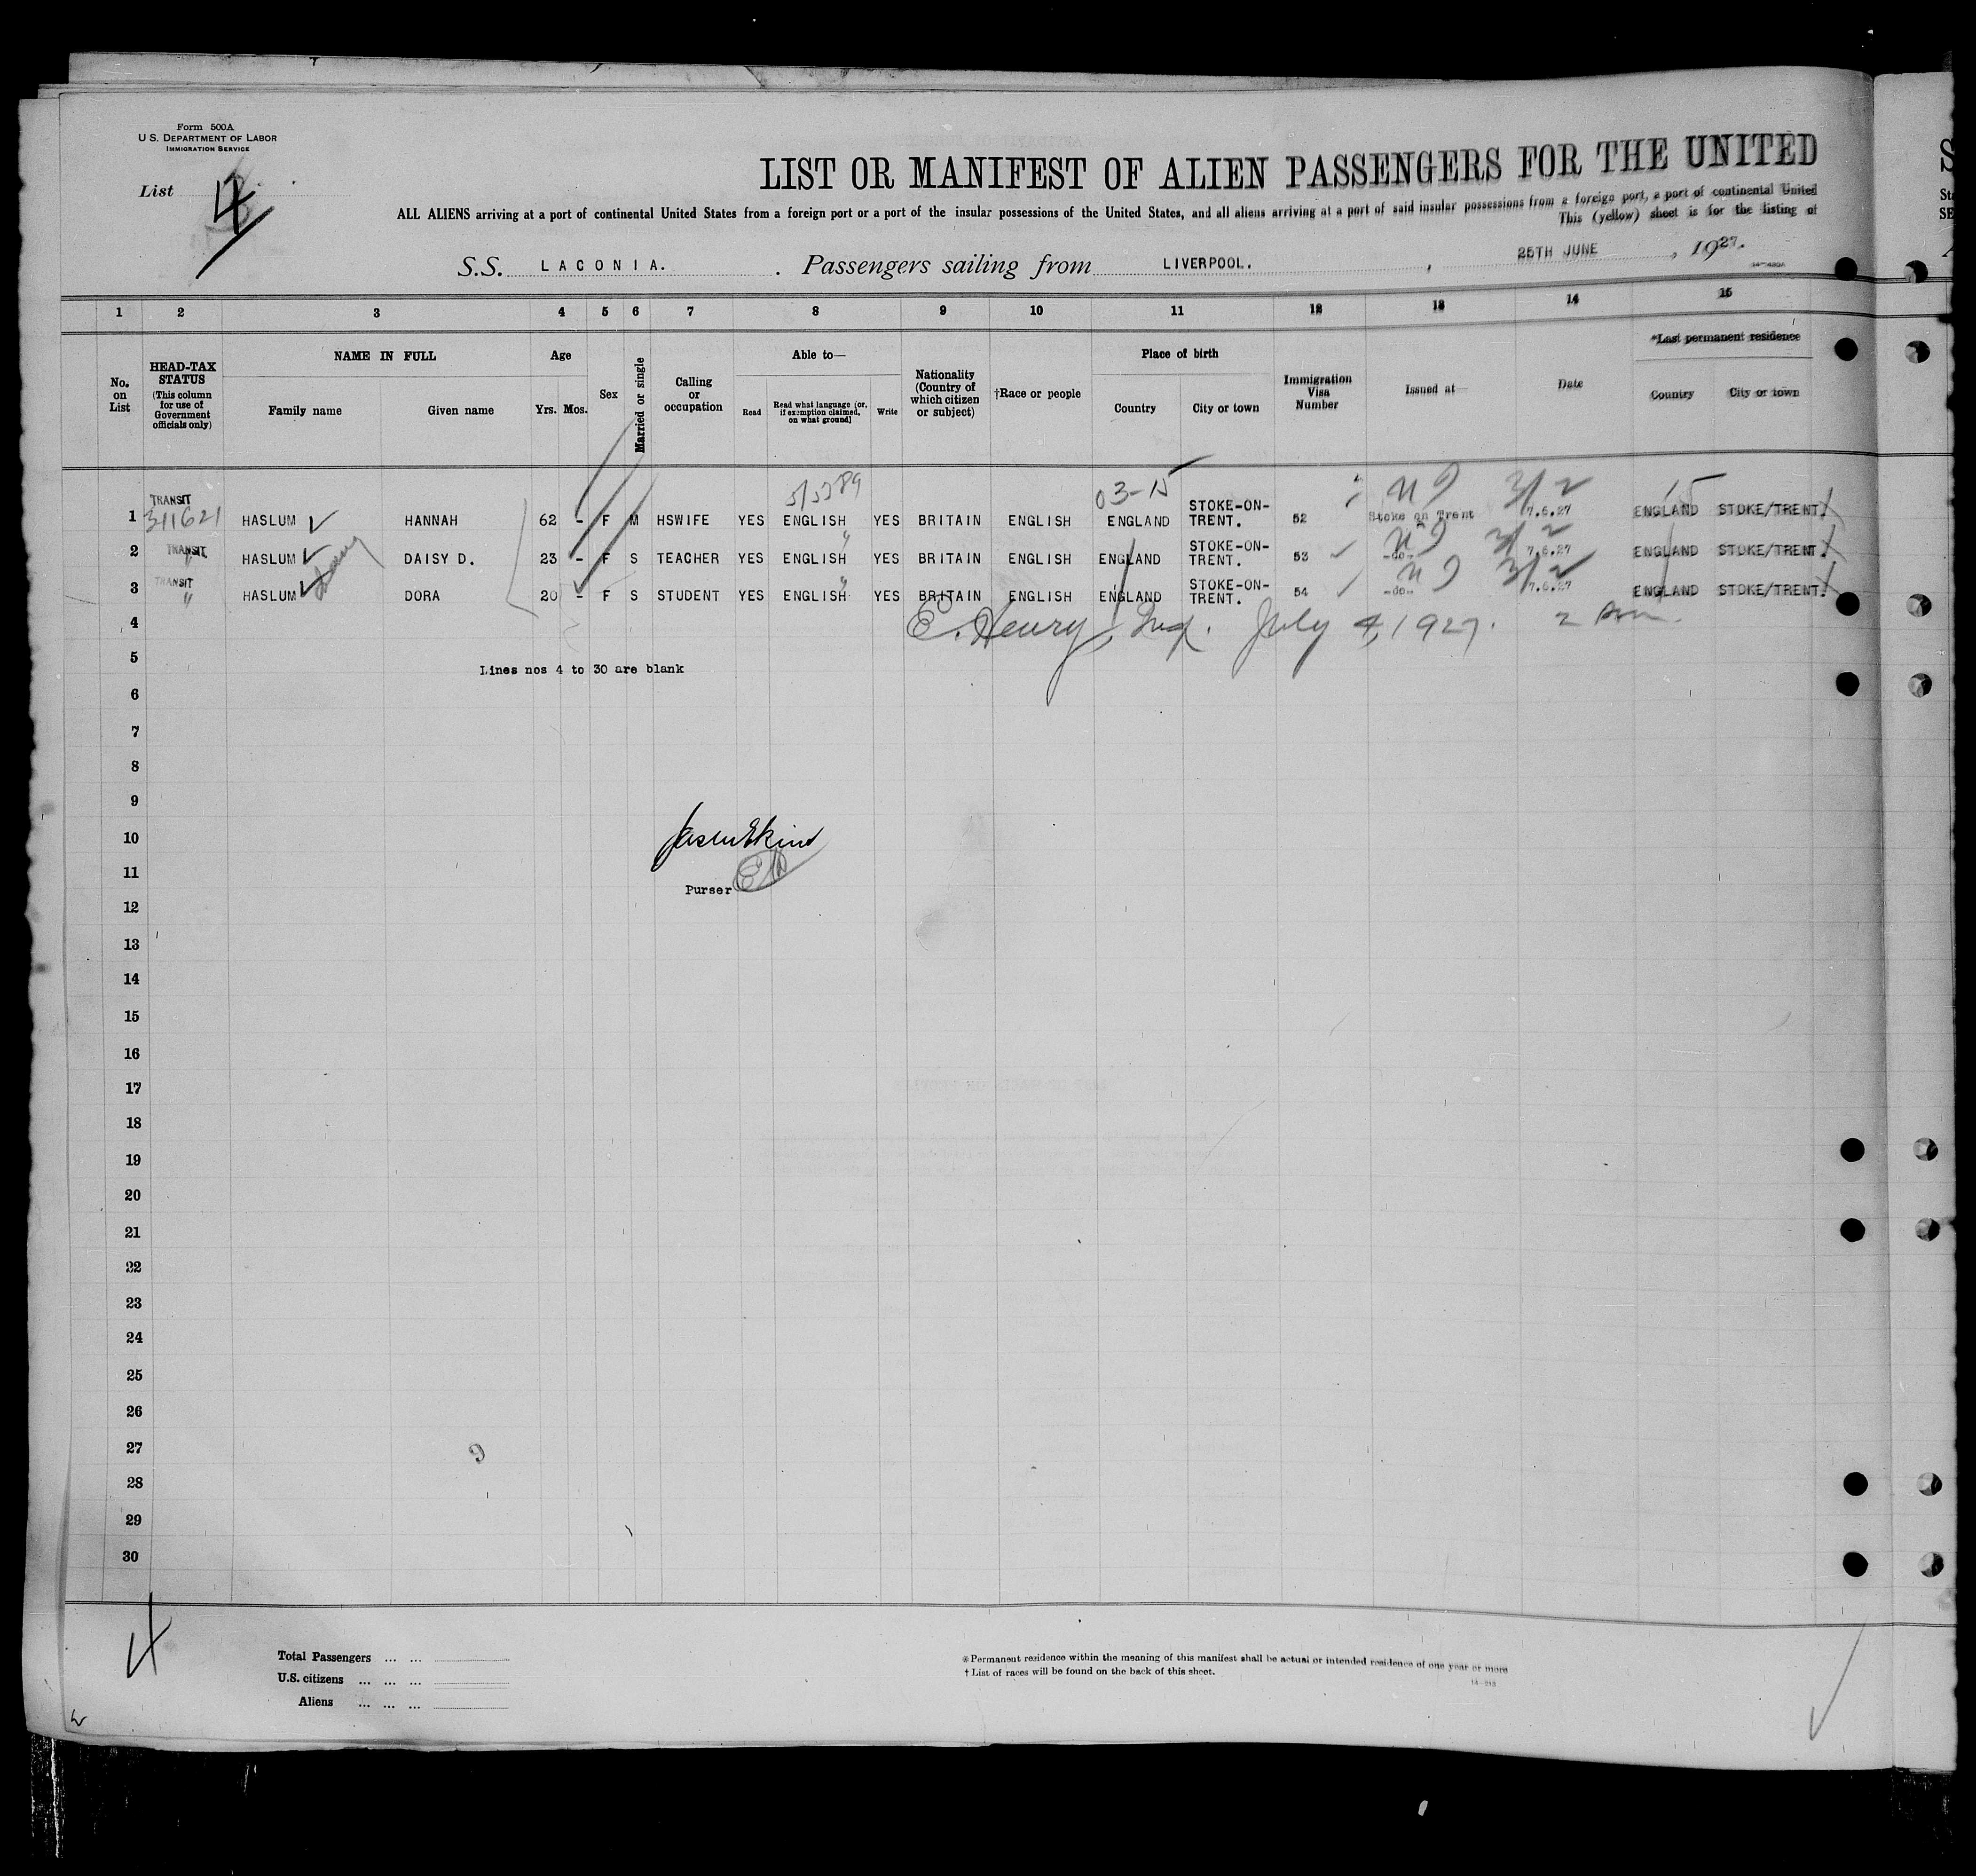 Form 500A
U. S. DEPARTMENT OF LABOR
IMMIGRATION SERVICE
List 4
LIST OR MANIFEST OF ALIEN PASSENGERS FOR THE UNITED
ALL ALIENS arriving at a port of continental United States from a foreign port or a port of the insular possessions of the United States, and all aliens arriving at a port of said insular possessions from a foreign port, a port of continental United
This (yellow) sheet is for the listing of
S.S. LACONIA. . Passengers sailing from LIVERPOOL. , 25TH JUNE , 1927.
1 2 3 4 5 6 7 8 9 10 11 12 13 14 15
No. on List
HEAD-TAX STATUS (This column for use of Government officials only)
NAME IN FULL
Family name Given name
Age
Yrs. Mos.
Sex
Married or single
Calling or occupation
Able to—
Read
Read what language (or, if exemption claimed, on what ground)
Write
Nationality (Country of which citizen or subject)
†Race or people
Place of birth
Country City or town
Immigration Visa Number
Issued at—
Date
*Last permanent residence
Country City or town
03-15 3/2 15
1 TRANSIT 311621 HASLUM HANNAH 62 - F M HSWIFE YES ENGLISH YES BRITAIN ENGLISH ENGLAND STOKE-ON-TRENT. 52 Stoke on Trent 7.6.27 ENGLAND STOKE/TRENT.
2 TRANSIT " HASLUM DAISY D. 23 - F S TEACHER YES ENGLISH YES BRITAIN ENGLISH ENGLAND STOKE-ON-TRENT. 53 -do- 3/2 7.6.27 ENGLAND STOKE/TRENT.
3 TRANSIT " HASLUM DORA 20 - F S STUDENT YES ENGLISH YES BRITAIN ENGLISH ENGLAND STOKE-ON-TRENT. 54 -do- 3/2 7.6.27 ENGLAND STOKE/TRENT.
4 E. Henry, Insp. July 4, 1927. 2 pm.
5 Lines nos 4 to 30 are blank
6
7
8
9
10
11
Purser
12
13
14
15
16
17
18
19
20
21
22
23
24
25
26
27 9
28
29
30
4
Total Passengers ... ...
U.S. citizens ... ... ...
Aliens ... ... ...
*Permanent residence within the meaning of this manifest shall be actual or intended residence of one year or more
† List of races will be found on the back of this sheet.